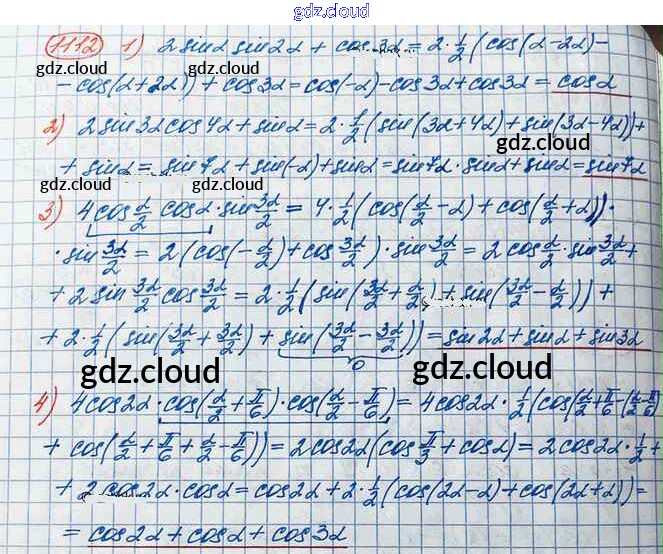 gdz.cloud
1112 1) 2 sinα sin2α + cos3α = 2·1/2 (cos(α-2α) -
gdz.cloud gdz.cloud
- cos(α+2α)) + cos3α = cos(-α) - cos3α + cos3α = cosα
2) 2 sin3α cos4α + sinα = 2·1/2 (sin(3α+4α) + sin(3α-4α)) +
+ sinα = sin7α + sin(-α) + sinα = sin7α - sinα + sinα = sin7α
gdz.cloud gdz.cloud
3) 4 cos α/2 cosα · sin 3α/2 = 4·1/2 (cos(α/2 - α) + cos(α/2 + α)) ·
· sin 3α/2 = 2 (cos(-α/2) + cos 3α/2) · sin 3α/2 = 2 cos α/2 · sin 3α/2 +
+ 2 sin 3α/2 cos 3α/2 = 2·1/2 (sin(3α/2 + α/2) + sin(3α/2 - α/2)) +
+ 2·1/2 (sin(3α/2 + 3α/2) + sin(3α/2 - 3α/2)) = sin2α + sinα + sin3α
0
gdz.cloud gdz.cloud
4) 4 cos2α · cos(α/2 + π/6) · cos(α/2 - π/6) = 4 cos2α · 1/2 (cos(α/2 + π/6 - (α/2 - π/6)
+ cos(α/2 + π/6 + α/2 - π/6)) = 2 cos2α (cos π/3 + cosα) = 2 cos2α · 1/2 +
+ 2 cos2α · cosα = cos2α + 2·1/2 (cos(2α-α) + cos(2α+α)) =
= cos2α + cosα + cos3α
gdz.cloud